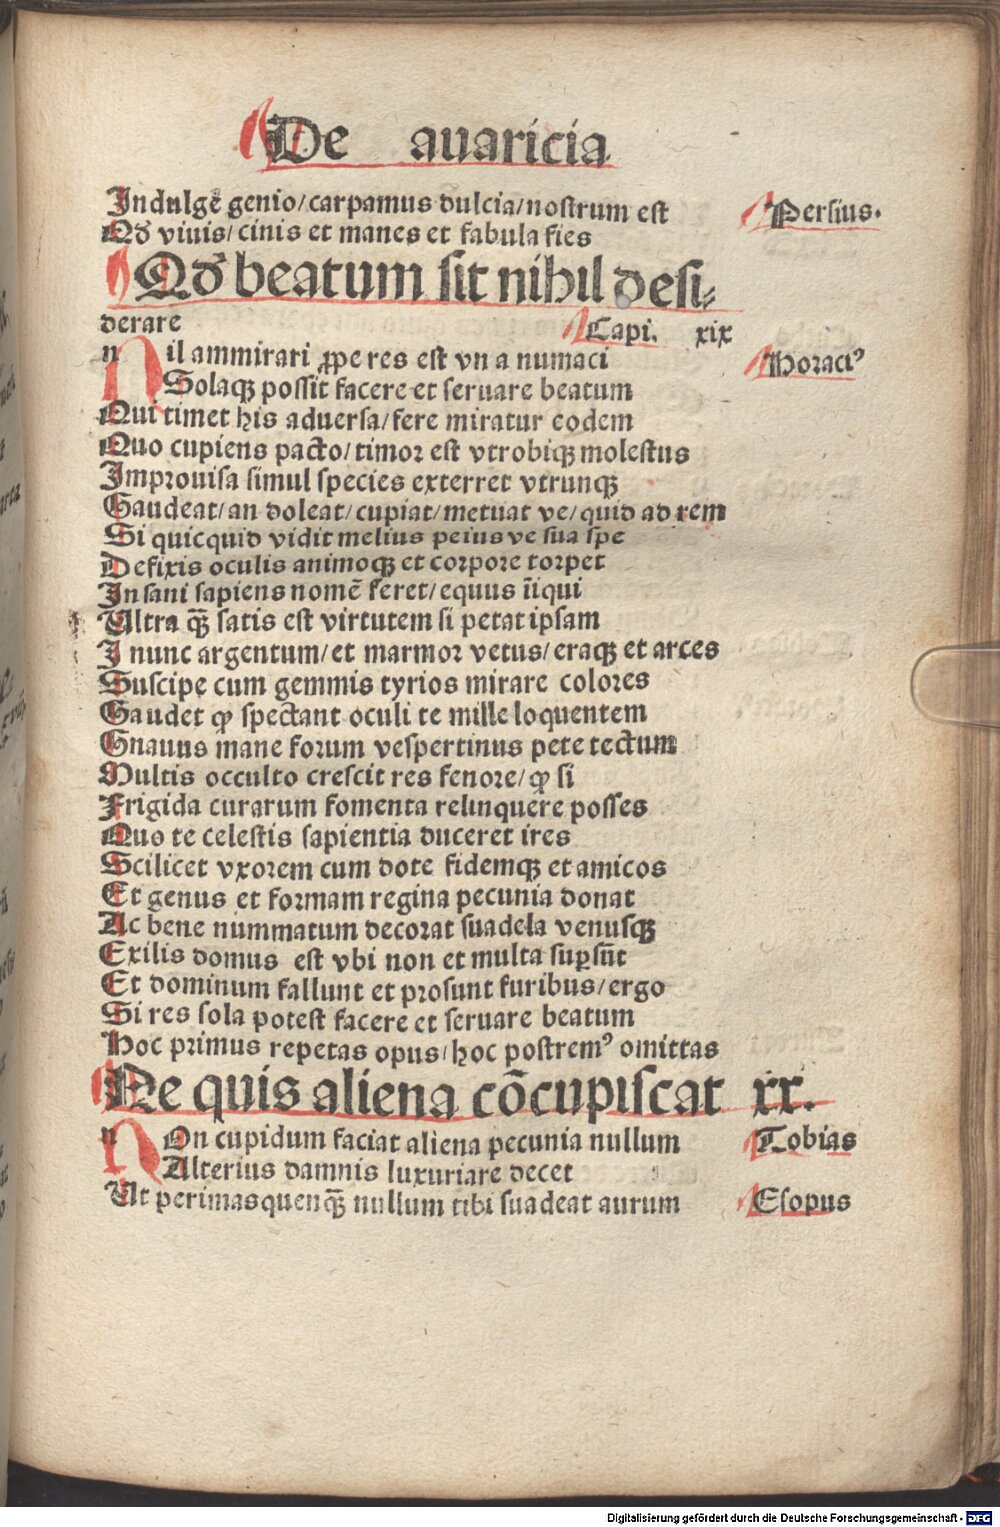 De auaricia
Indulgē genio/carpamus dulcia/nostrum est Persius.
Qđ viuis/cinis et manes et fabula fies
Qđ beatum sit nihil desi⸗
derare Capi. xix
nil ammirari ꝓpe res est vn a numaci Horaciꝰ
Solaqꝫ possit facere et seruare beatum
Qui timet his aduersa/fere miratur eodem
Quo cupiens pacto/timor est vtrobiqꝫ molestus
Improuisa simul species exterret vtrunqꝫ
Gaudeat/an doleat/cupiat/metuat ve/quid ad rem
Si quicquid vidit melius peius ve sua spe
Defixis oculis animoqꝫ et corpore torpet
Insani sapiens nomē feret/equus īiqui
Ultra qꝫ̄ satis est virtutem si petat ipsam
I nunc argentum/et marmor vetus/eraqꝫ et arces
Suscipe cum gemmis tyrios mirare colores
Gaudet ꝙ spectant oculi te mille loquentem
Gnauus mane forum vespertinus pete tectum
Multis occulto crescit res fenore/ꝙ si
Frigida curarum fomenta relinquere posses
Quo te celestis sapientia duceret ires
Scilicet vxorem cum dote fidemqꝫ et amicos
Et genus et formam regina pecunia donat
Ac bene nummatum decorat suadela venusqꝫ
Exilis domus est vbi non et multa suꝑsūt
Et dominum fallunt et prosunt furibus/ergo
Si res sola potest facere et seruare beatum
Hoc primus repetas opus/hoc postremꝰ omittas
Ne quis aliena cōcupiscat xx.
nOn cupidum faciat aliena pecunia nullum Tobias
Alterius damnis luxuriare decet
Ut perimas quenqꝫ̄ nullum tibi suadeat aurum Esopus
Digitalisierung gefördert durch die Deutsche Forschungsgemeinschaft - DFG